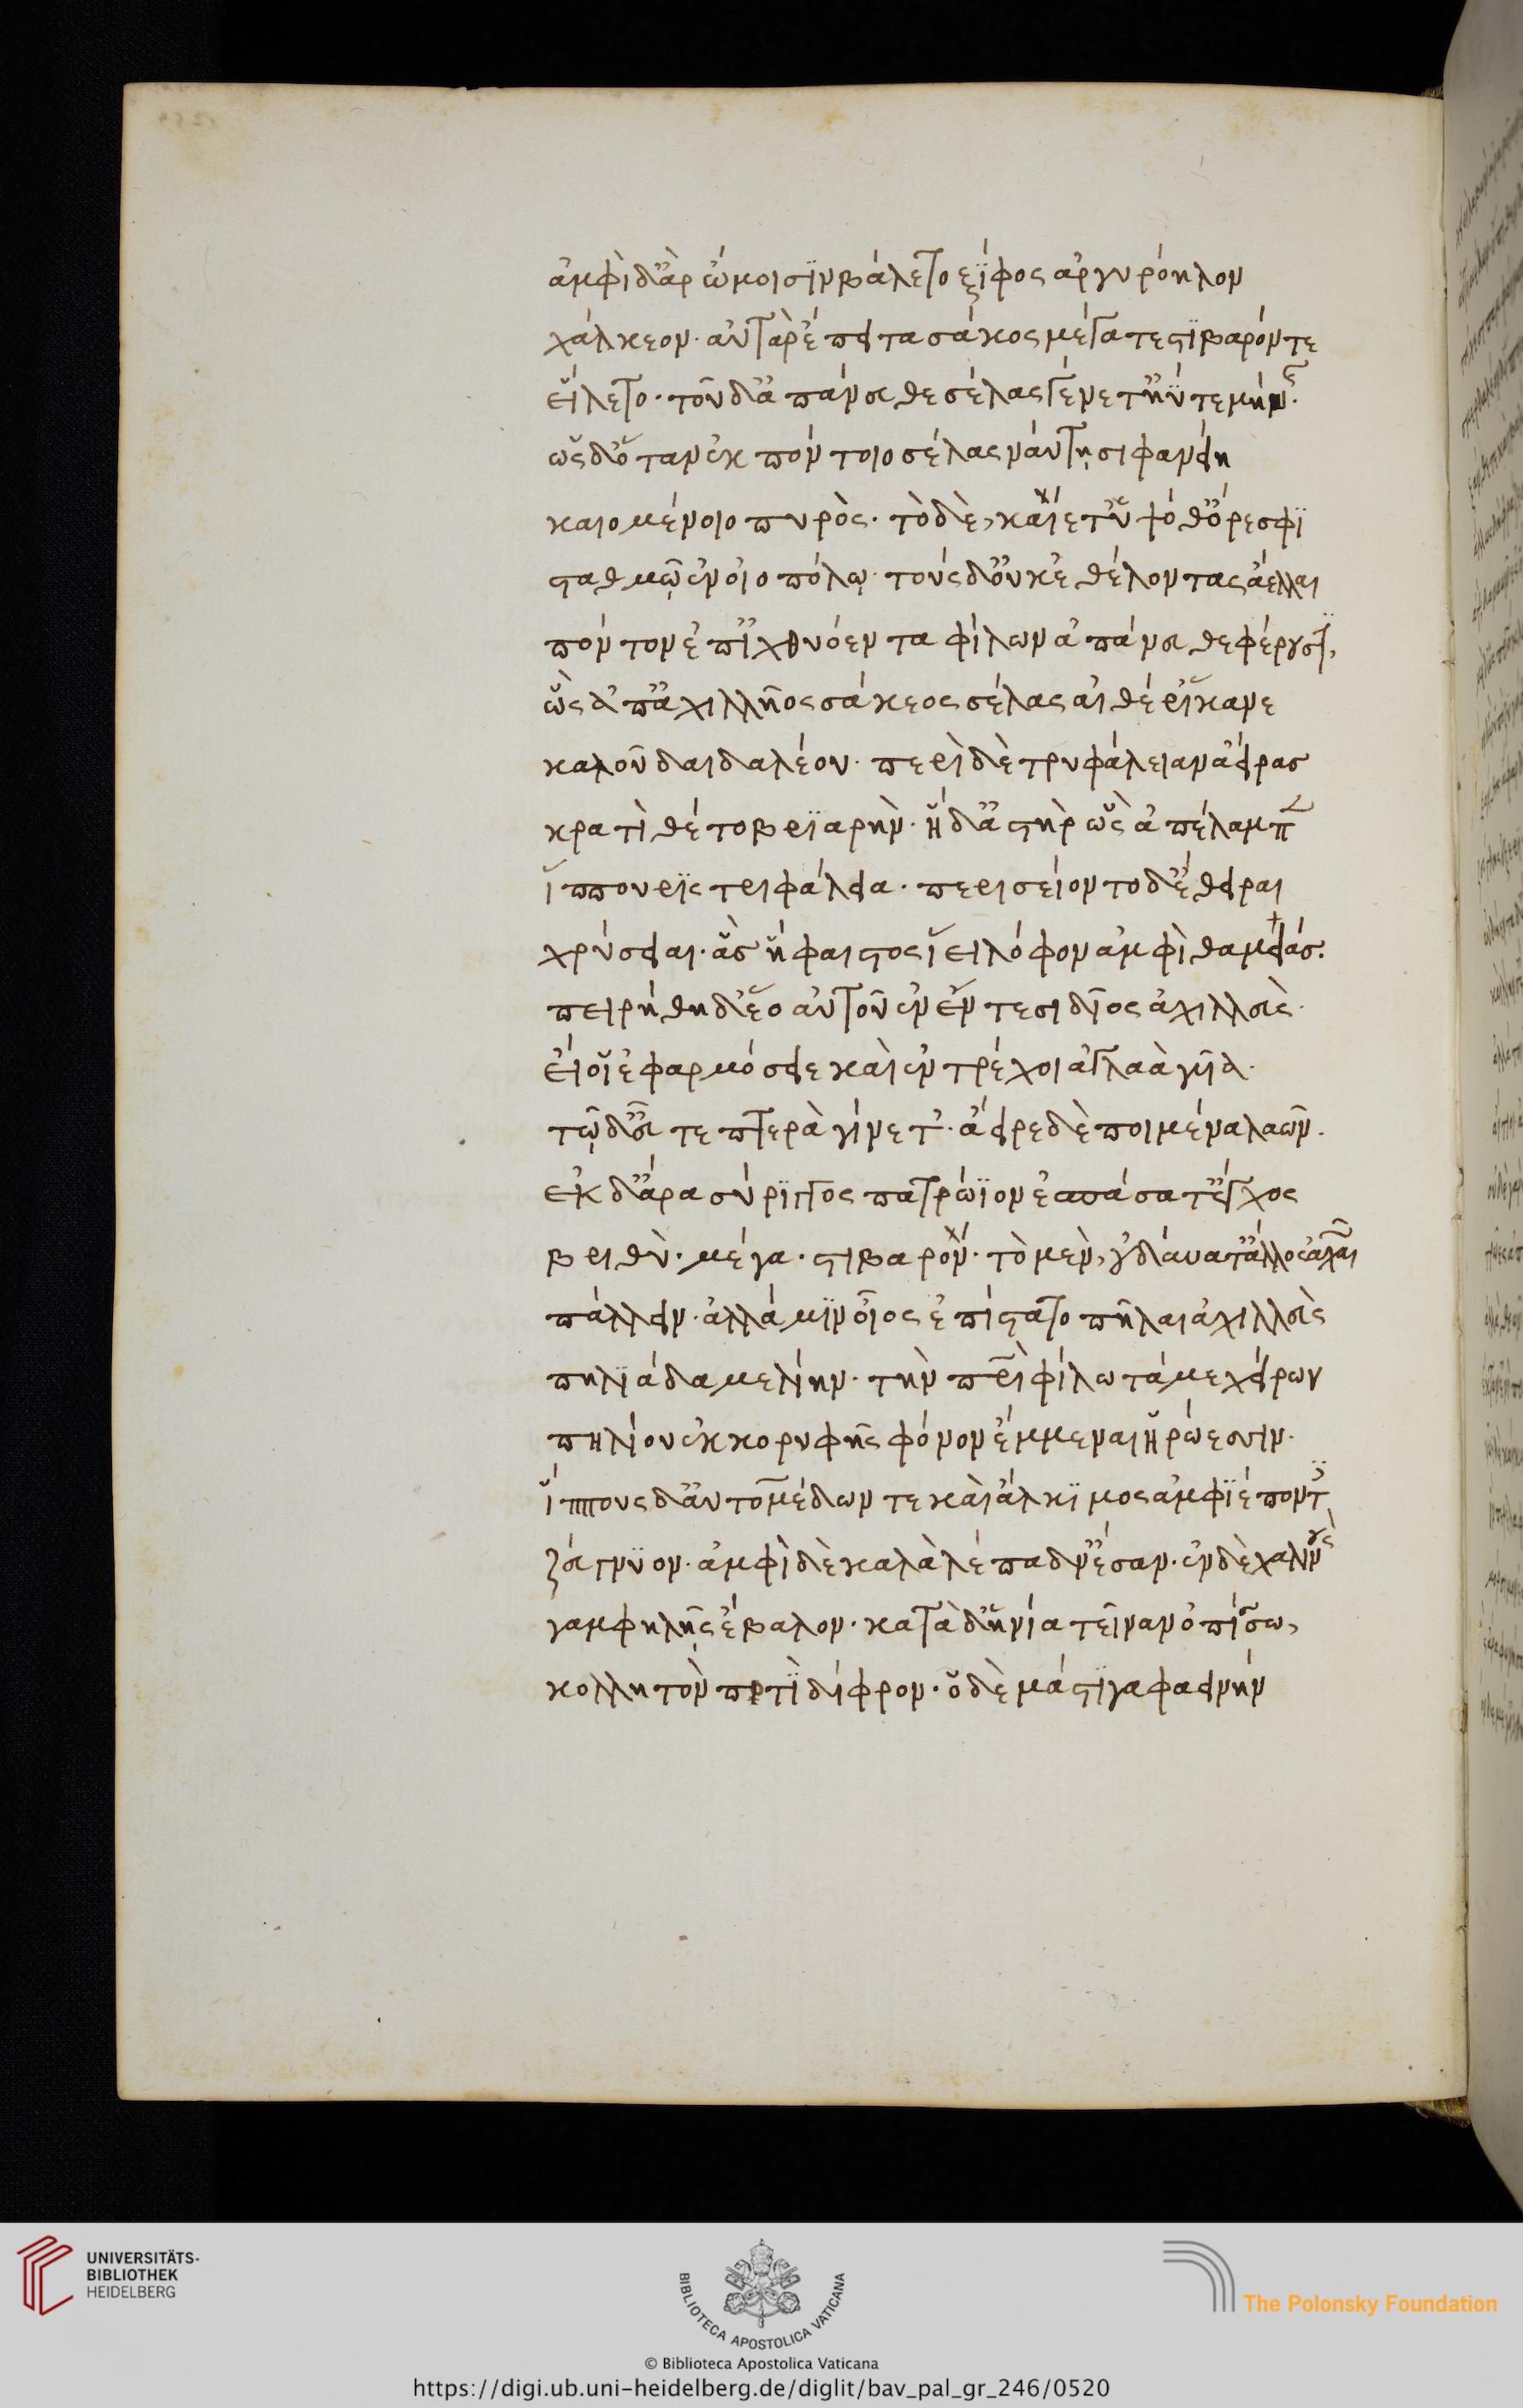 ἀμφὶ δ' ἂρ ὤμοισϊν βάλετο ξΐφος ἀργυρόηλον
χάλκεον· αὐτὰρ ἔπειτα σάκος μέγα τε στϊβαρόν τε
εἵλετο· τοῦ δ' ἀπάνευθε σέλας γένετ' ἠΰτε μήνης·
ὡς δ' ὅταν ἐκ πόντοιο σέλας ναύτῃσι φανείη
καιομένοιο πυρὸς· τὸ δὲ, καίετ' ὑψόθ' ὄρεσφϊ
σταθμῷ ἐν οἰοπόλῳ· τοὺς δ' οὐκ ἐθέλοντας ἄελλαι
πόντον ἐπ' ἰχθυόεντα φίλων ἀπάνευθε φέρουσϊ,
ὣς ἀπ' ἀχιλλῆος σάκεος σέλας αἰθέρ' ἵκανε
καλοῦ δαιδαλέου· περὶ δὲ τρυφάλειαν ἀείρας
κρατὶ θέτο βρϊαρὴν· ἡ δ' ἀστὴρ ὣς ἀπέλαμπεν
ἵππουρϊς τριφάλεια· περισείοντο δ' ἔθειραι
χρύσειαι· ἃς ἥφαιστος ἵει λόφον ἀμφὶ θαμειάς·
πειρήθη δ' ἕο αὐτοῦ ἐν ἔντεσι δῖος ἀχιλλεὺς·
εἰ οἷ ἐφαρμόσειε καὶ ἐντρέχοι ἀγλαὰ γυῖα·
τῷ δ' εὖτε πτερὰ γίνετ'· ἄειρε δὲ ποιμένα λαῶν·
ἐκ δ' ἄρα σύρϊγγος πατρώϊον ἐσπάσατ' ἔγχος
βριθὺ· μέγα· στιβαρὸν· τὸ μὲν, οὐ δύνατ' ἄλλος ἀχαιῶν
πάλλειν· ἀλλά μϊν οἶος ἐπίστατο πῆλαι ἀχιλλεὺς
πηλϊάδα μελίην· τὴν πατρὶ φίλω τάμε χείρων
πηλίου ἐκ κορυφῆς φόνον ἔμμεναι ἡρώεσσιν·
ἵππους δ' αὐτομέδων τε καὶ ἄλκϊμος ἀμφϊέποντες
ζεύγνϋον· ἀμφὶ δὲ καλὰ λέπαδν' ἔσαν· ἐν δὲ χαλινοὺς
γαμφηλῇς ἔβαλον· κατὰ δ' ἡνία τεῖναν ὀπίσσω,
κολλητὸν προτὶ δίφρον· ὁ δὲ μάστϊγα φαεινὴν
UNIVERSITÄTS-
BIBLIOTHEK
HEIDELBERG
BIBLIOTECA APOSTOLICA VATICANA
The Polonsky Foundation
© Biblioteca Apostolica Vaticana
https://digi.ub.uni-heidelberg.de/diglit/bav_pal_gr_246/0520